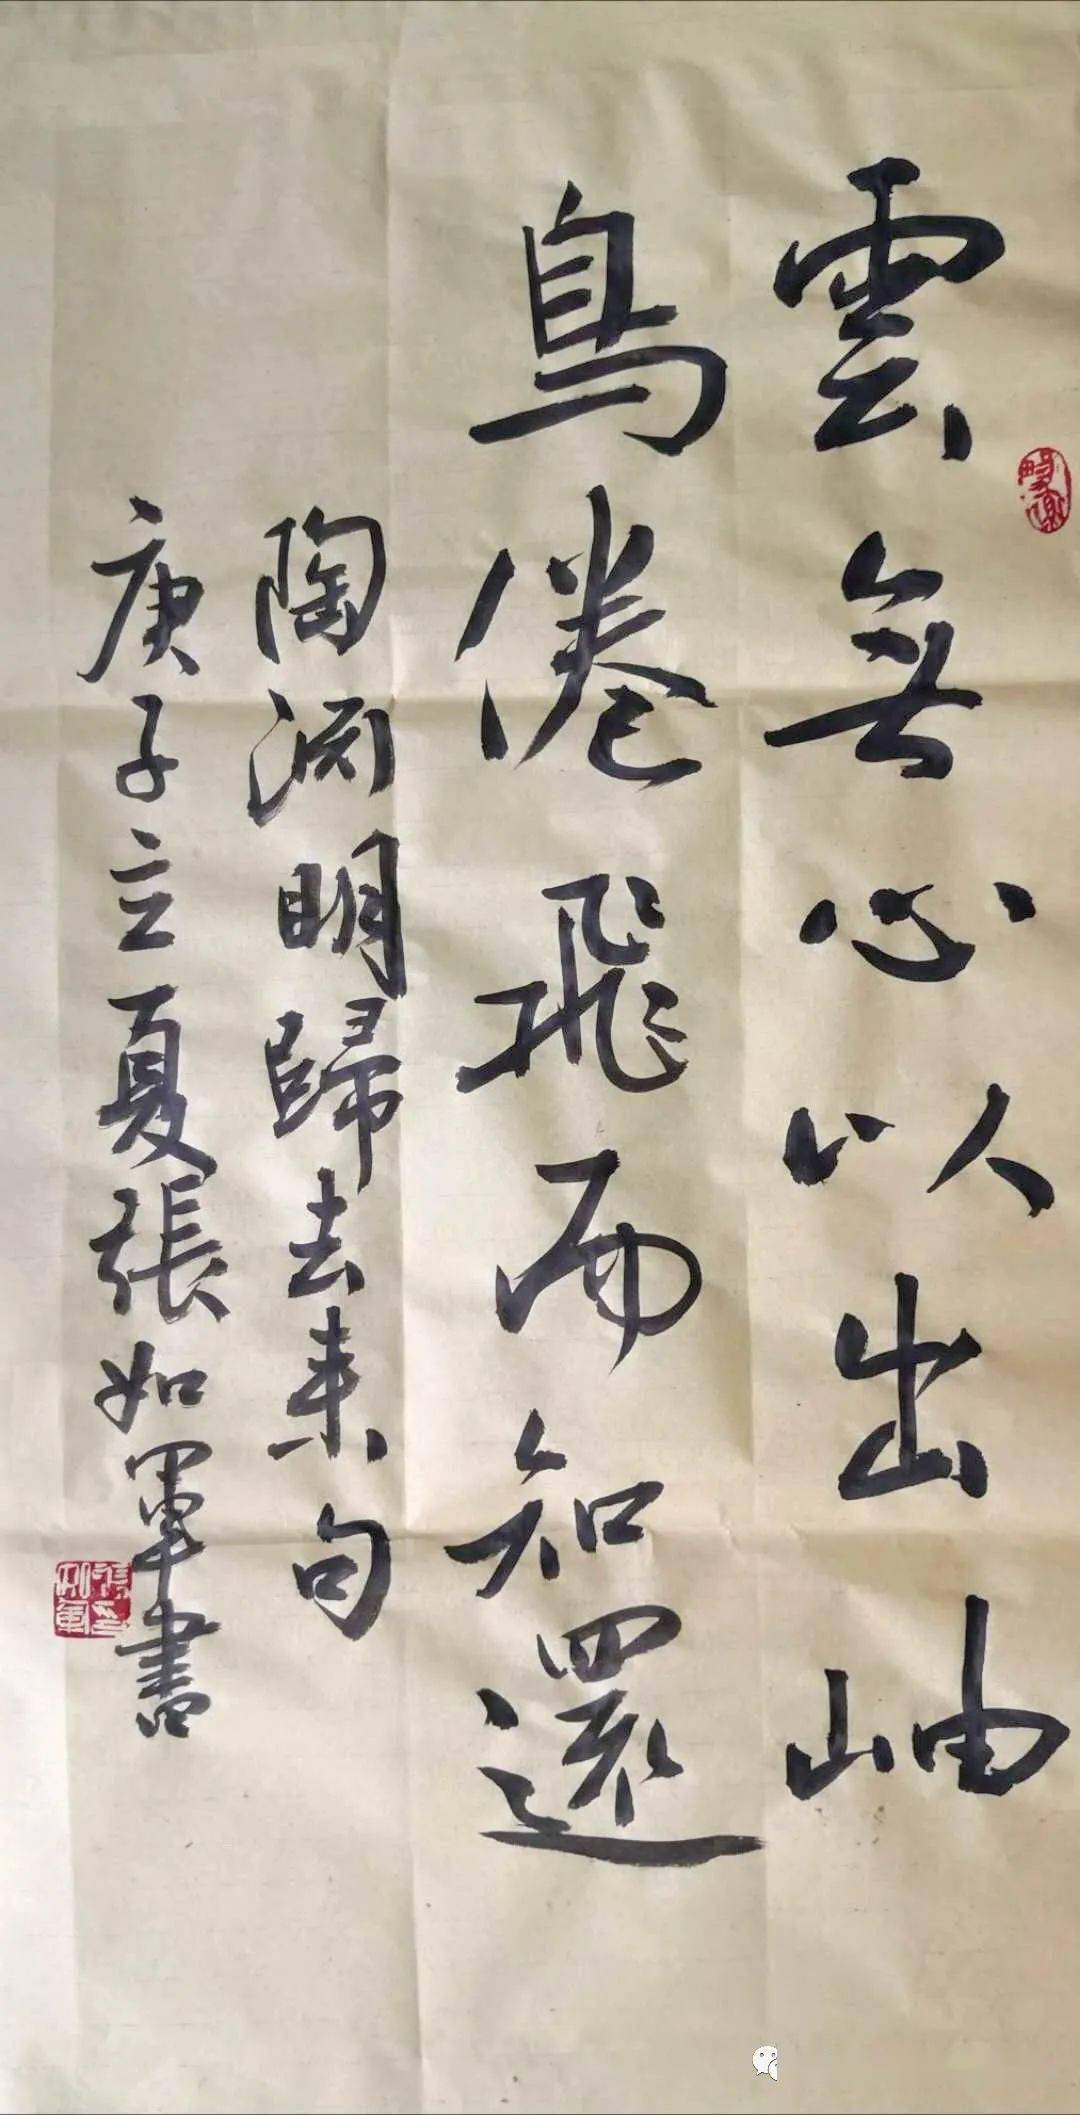 雲無心以出岫
鳥倦飛而知還
陶渊明歸去来句
庚子立夏張如軍書